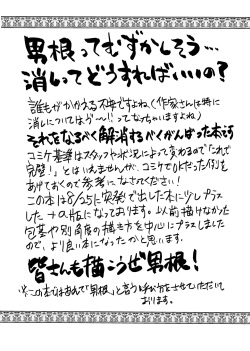 男根ってむずかしそう…
消いってどうすればいいの?
誰もがかかえる不安ですよね(作家さんは特に
消しについてはう〜!ってなっちゃいますよね)
それをなるべく解消するべくがんばった本です
コミケ基準はスタッフや状況によって変わるので「これで
完璧!」とはいえませんが、コミケでOKだった例を
あげておくので参考になさてください!
この本は8/25に突発で出した本に少しプラス
した+α版になっております。以前描けなかった
包茎や別角度の描き方を中心にプラスしました
ので、より良い本になったかと思います。
皆さんも描こうぜ男根!
※この本ではあえて「男根」と言う呼び方をさせていただいて
おります。